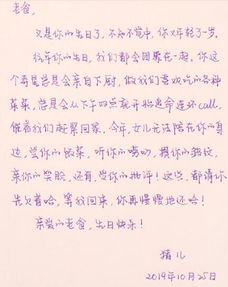 老爸，
又是你的生日了，不知不觉中，你又年轻了一岁。
往年你的生日，我们都会团聚在一起，你这
个寿星总是会亲自下厨，做我们喜欢吃的各种
菜菜，总是会从下午四点就开始追命连环call，
催着我们赶紧回家，今年，女儿无法陪在你的身
边，尝你的饭菜，听你的唠叨，摸你的皱纹，
亲你的笑脸，还有，受你的批评！这些，都请你
先欠着哈，等我回来，你再慢慢地还哈！
亲爱的老爸，生日快乐！
2019年10月25日